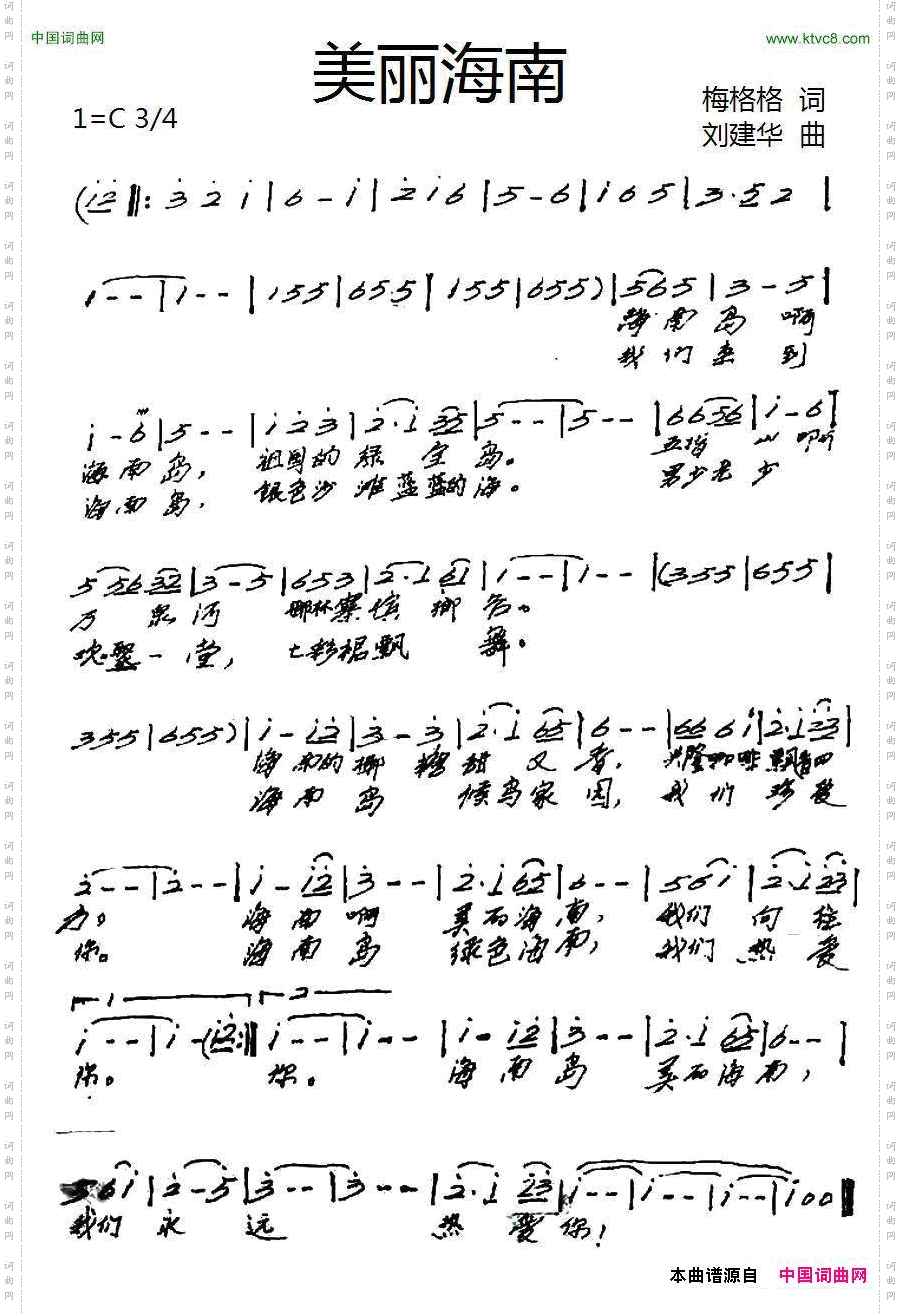 中国词曲网 www.ktvc8.com
美丽海南
1=C 3/4
梅格格 词
刘建华 曲
(i̇2̇ ‖: 3̇ 2̇ i | 6 - i | 2̇ i 6 | 5 - 6 | i 6 5 | 3 · 5 2 |
1 - - | 1 - - | 1 5 5 | 6 5 5 | 1 5 5 | 6 5 5 ) | 5 6 5 | 3 - 5 |
海南岛 啊
我们来到
i - 6 | 5 - - | i 2̇ 3̇ | 2̇ · i 35 | 5 - - | 5 - - | 6 6 56 | i - 6 |
海南岛, 祖国的绿宝岛。 五指山啊
海南岛, 银色沙滩蓝蓝的海。 男少老少
5 56 32 | 3 - 5 | 6 5 3 | 2 · 1 61 | 1 - - | 1 - - | (3 5 5 | 6 5 5 |
万泉河 椰林寨 椰
欢聚一堂, 七彩裙飘 舞。
3 5 5 | 6 5 5 ) | i - i2̇ | 3̇ - 3̇ | 2̇ · i 65 | 6 - - | 66 6 i | 2̇ · i 2̇3̇ |
海南的椰糖甜又香, 兴隆咖啡飘香四
海南岛 候鸟家园, 我们珍爱
2̇ - - | 2̇ - - | i - i2̇ | 3̇ - - | 2̇ · i 65 | 6 - - | 5 6 i | 2̇ · i 2̇3̇ |
方。 海南啊 美丽海南, 我们向往
你。 海南岛 绿色海南, 我们热爱
1 2
i - - | i - (i2̇ :‖ i - - | i - - | i - i2̇ | 3̇ - - | 2̇ · i 65 | 6 - - |
你。 你。 海南岛 美丽海南,
5 6 i | 2̇ - 5 | 3̇ - - | 3̇ - - | 2̇ · i 2̇3̇ | i - - | i - - | i - - | i 0 0 ‖
我们永远 热爱你!
本曲谱源自 中国词曲网